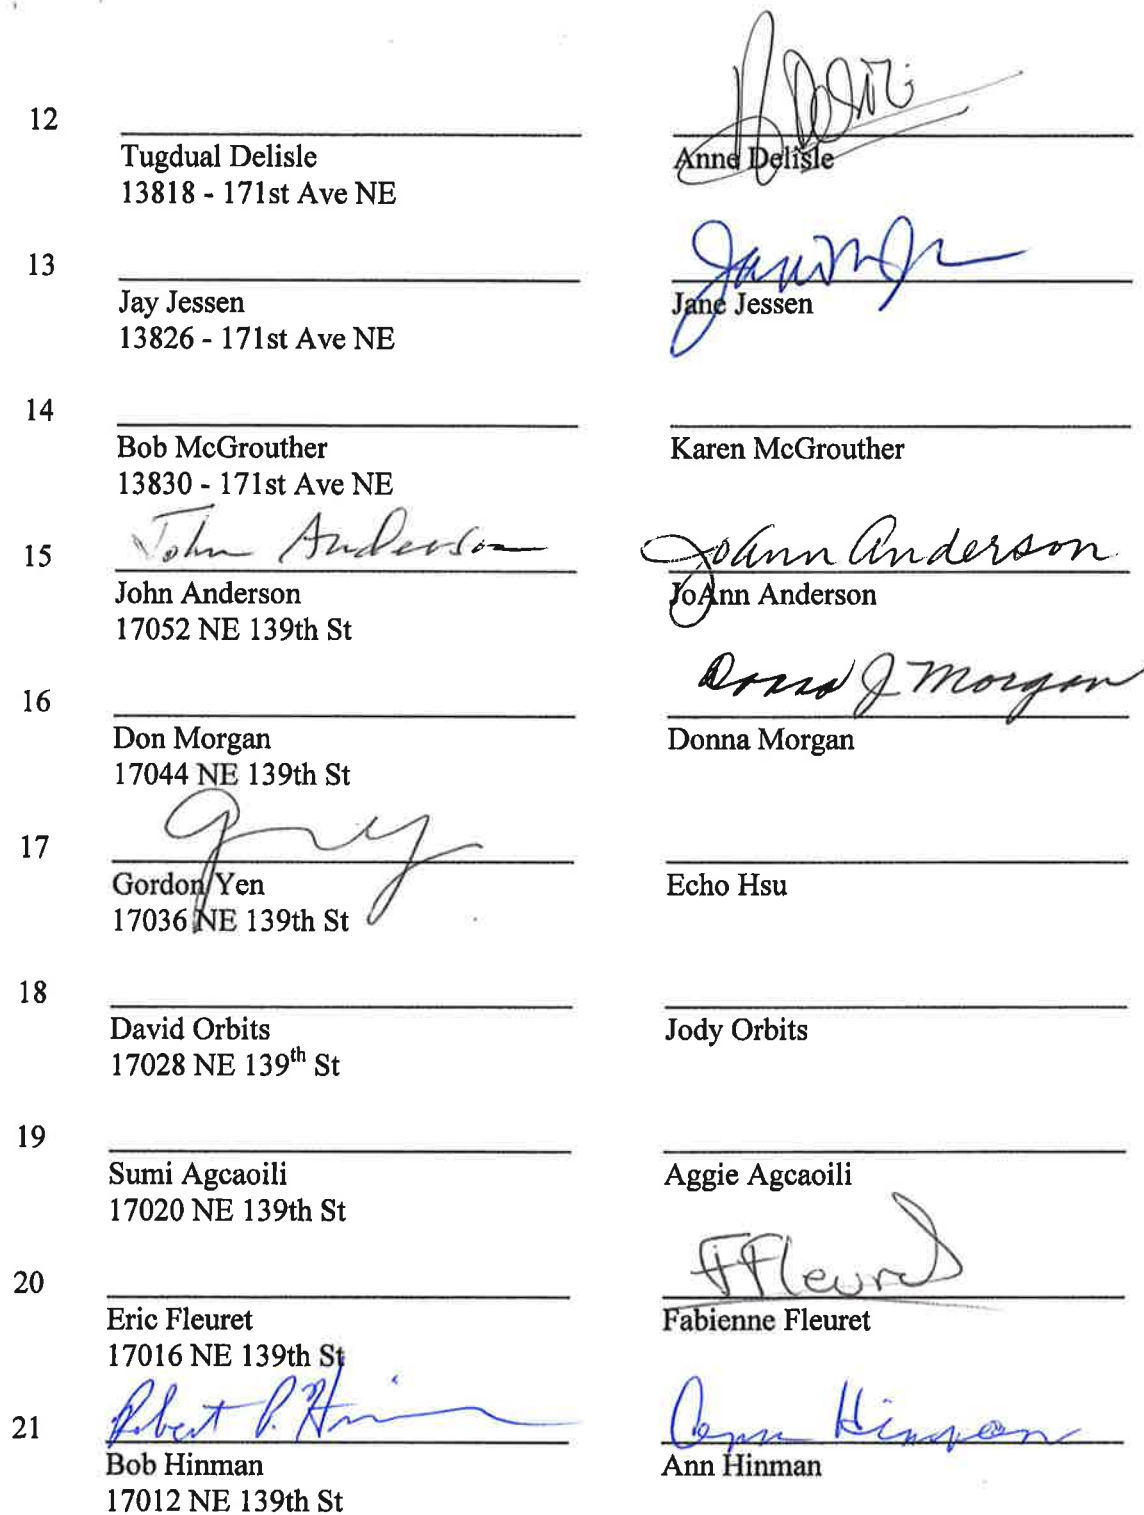 12
Tugdual Delisle
13818 - 171st Ave NE
Anne Delisle
13
Jay Jessen
13826 - 171st Ave NE
Jane Jessen
14
Bob McGrouther
13830 - 171st Ave NE
Karen McGrouther
John Anderson
JoAnn Anderson
15
John Anderson
17052 NE 139th St
JoAnn Anderson
Donna J Morgan
16
Don Morgan
17044 NE 139th St
Donna Morgan
17
Gordon Yen
17036 NE 139th St
Echo Hsu
18
David Orbits
17028 NE 139th St
Jody Orbits
19
Sumi Agcaoili
17020 NE 139th St
Aggie Agcaoili
F Fleuret
20
Eric Fleuret
17016 NE 139th St
Fabienne Fleuret
Robert P. Hinman
Ann Hinman
21
Bob Hinman
17012 NE 139th St
Ann Hinman